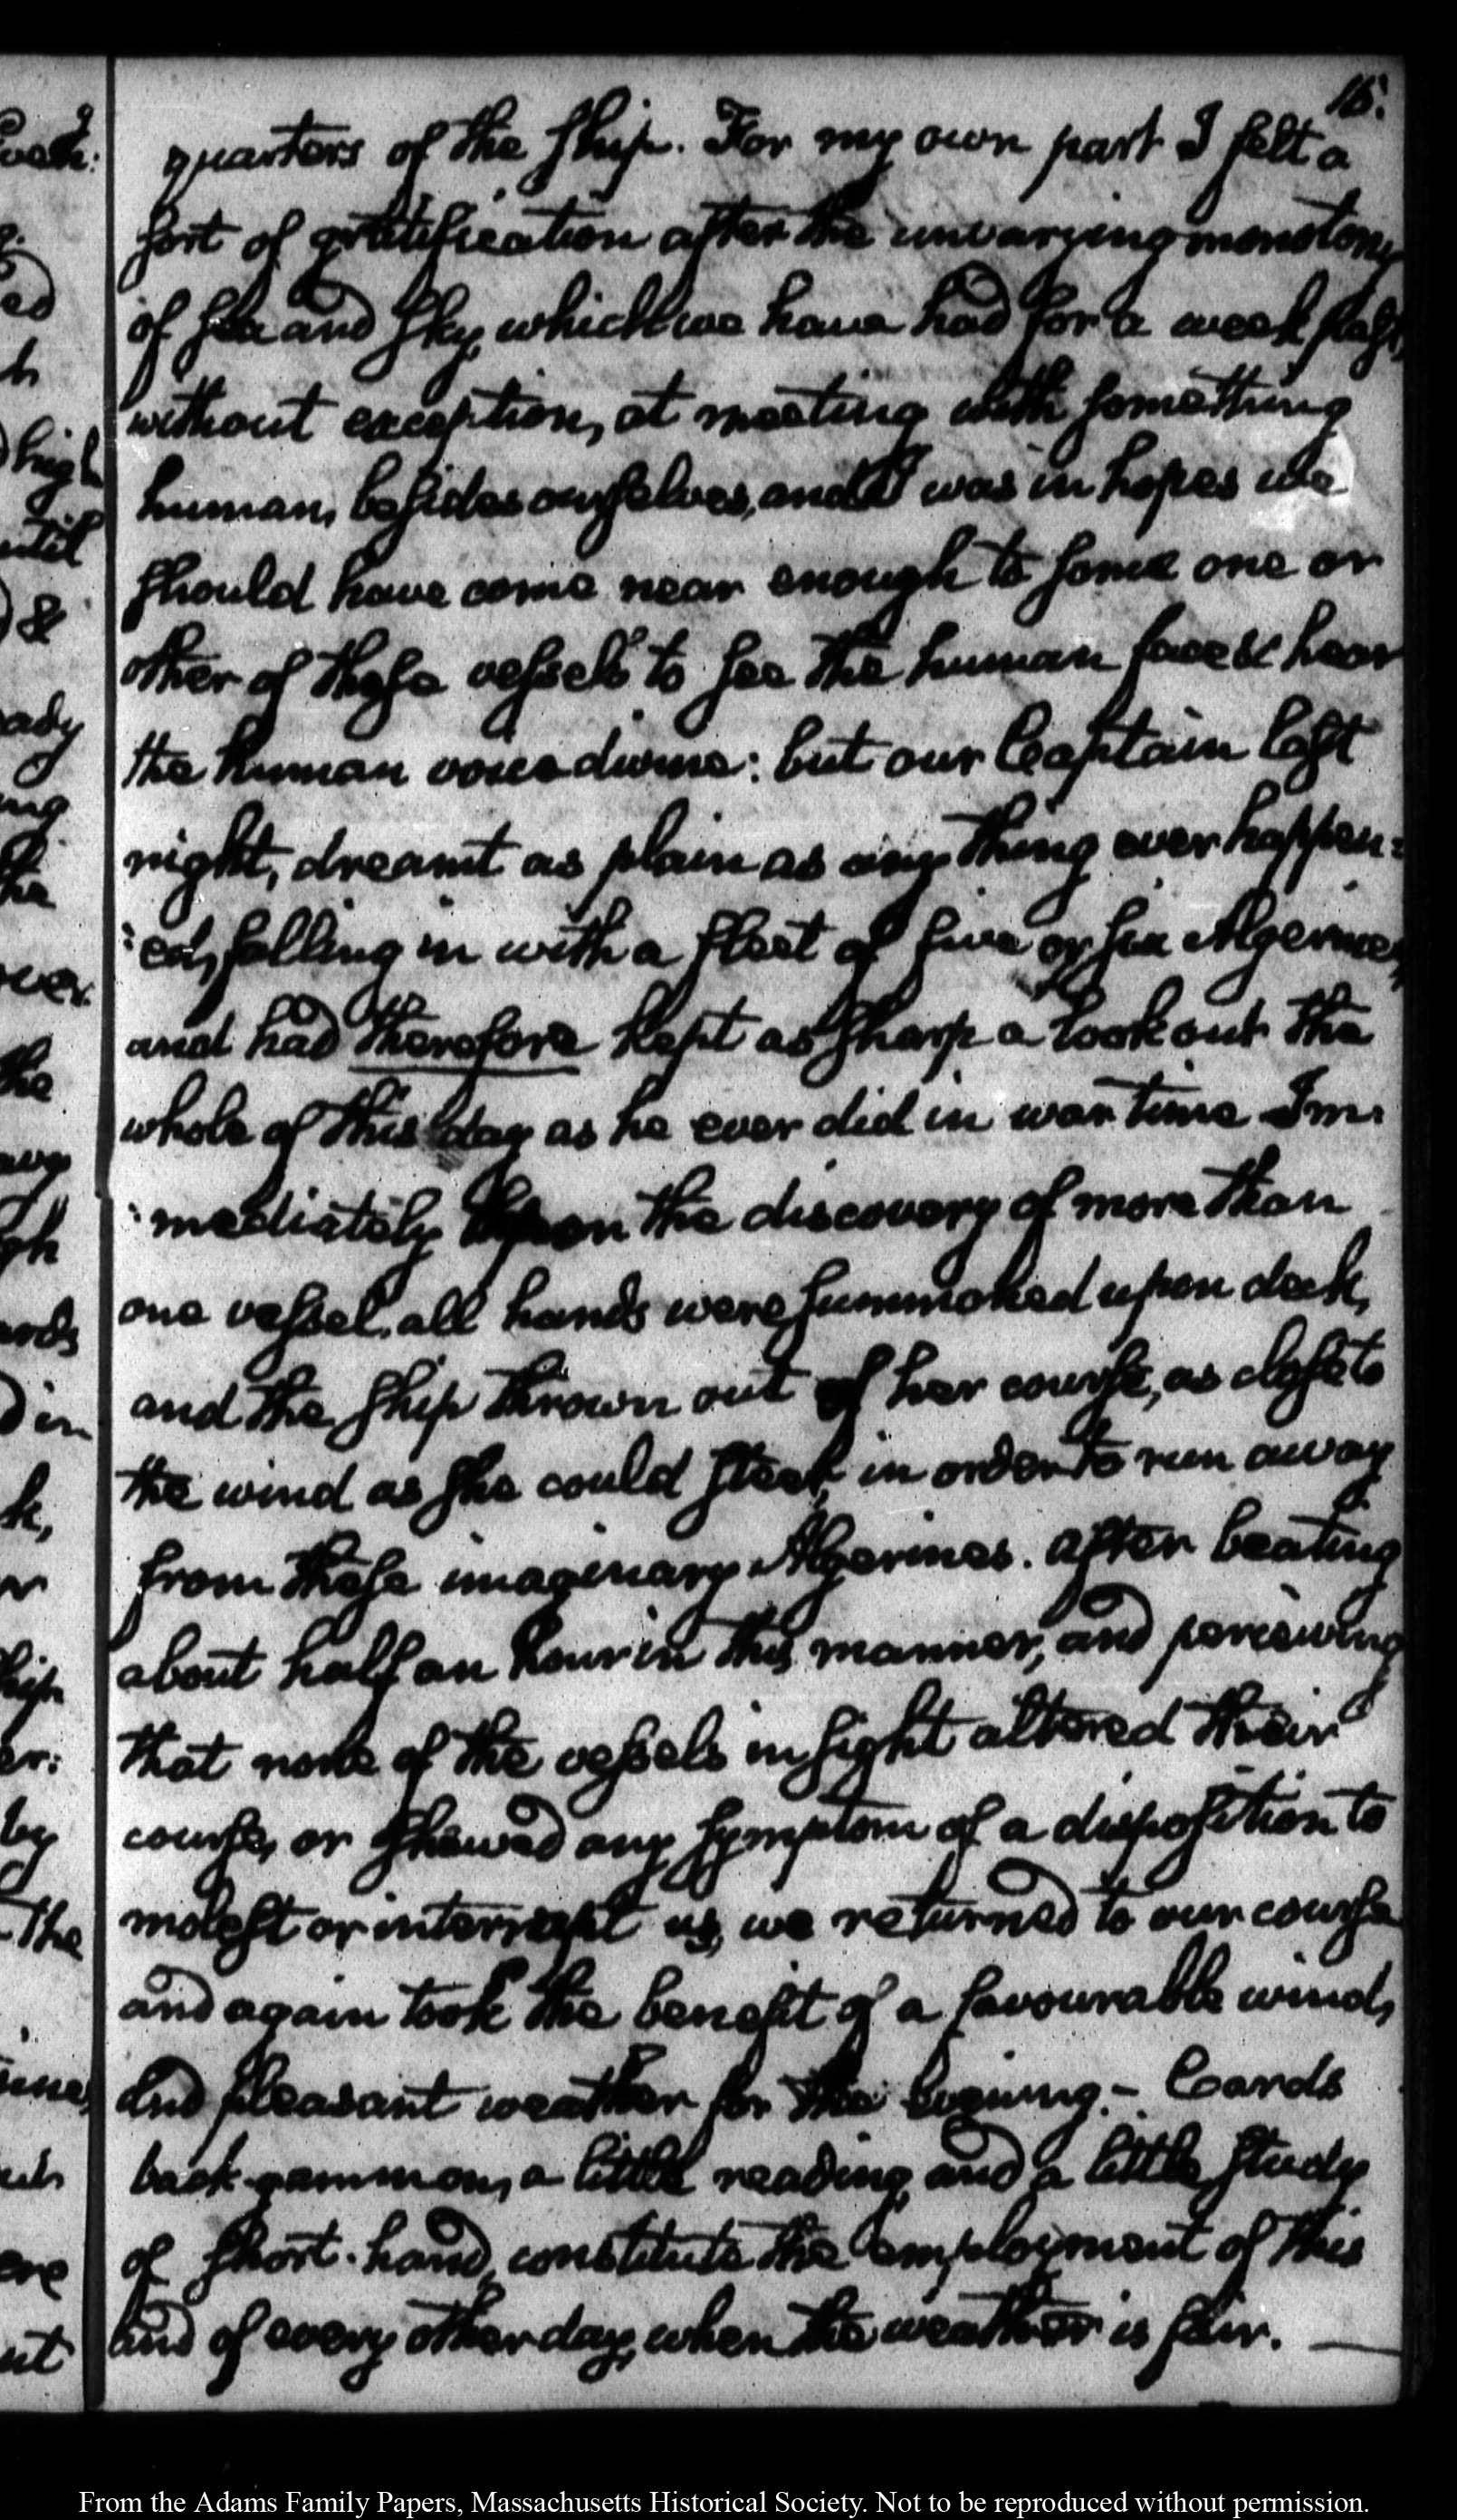 15.
quarters of the ship. For my own part I felt a
sort of gratification after the unvarying monotony
of sea and sky, which we have had for a week past,
without exception, at meeting with something
human, besides ourselves, and I was in hopes we
should have come near enough to some one or
other of these vessels to see the human face & hear
the human voice divine: but our Captain last
night, dreamt as plain as any thing ever happen:
:ed, falling in with a fleet of five or six Algerines,
and had therefore kept as sharp a look out the
whole of this day as he ever did in war time Im:
:mediately upon the discovery of more than
one vessel, all hands were summoned upon deck,
and the ship thrown out of her course, as close to
the wind as she could steer, in order to run away
from these imaginary Algerines. after beating
about half an hour in this manner, and perceiving
that none of the vessels in sight altered their
course, or shewed any symptom of a disposition to
molest or interrupt us, we returned to our course
and again took the benefit of a favourable wind,
and pleasant weather for the evening.- Cards
back-gammon, a little reading, and a little study
of short-hand, constitute the employment of this
and of every other day, when the weather is fair. —
From the Adams Family Papers, Massachusetts Historical Society. Not to be reproduced without permission.